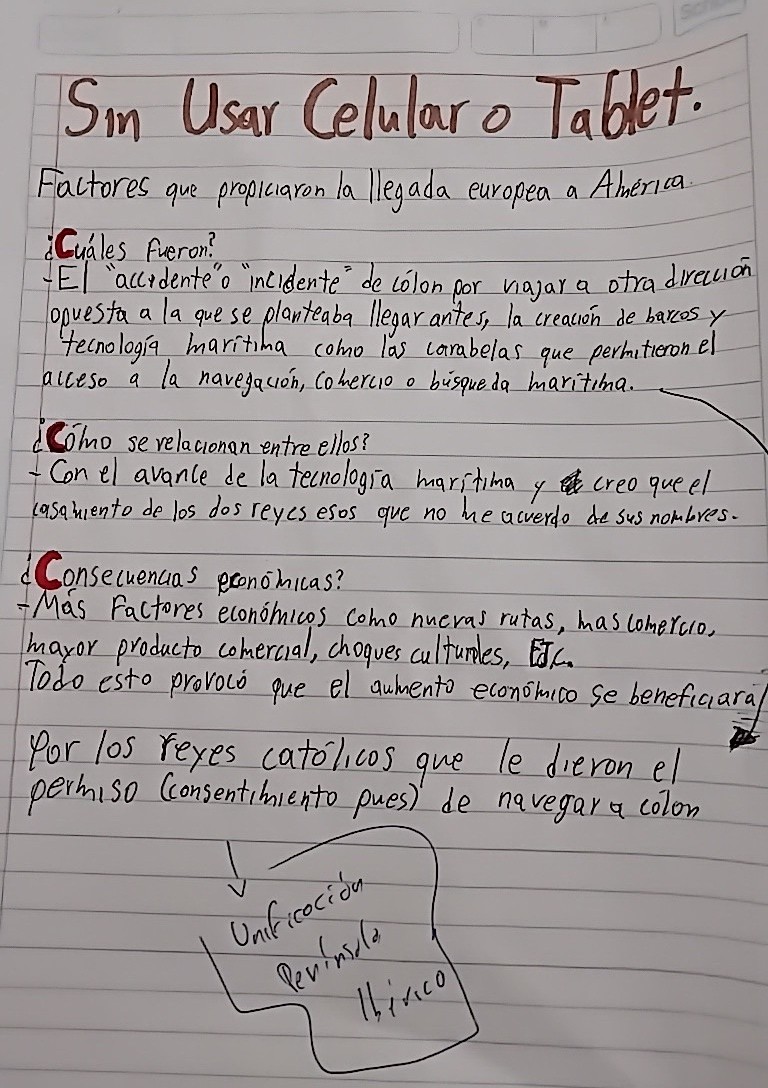 Sin Usar Celular o Tablet.
Factores que propiciaron la llegada europea a América.
¿Cuáles fueron?
- El "accidente" o "incidente" de cólon por viajar a otra dirección
opuesta a la que se planteaba llegar antes, la creación de barcos y
tecnología marítima como las carabelas que permitieron el
acceso a la navegación, comercio o búsqueda marítima.
¿Cómo se relacionan entre ellos?
- Con el avance de la tecnología marítima y creo que el
casamiento de los dos reyes esos que no me acuerdo de sus nombres.
¿Consecuencias económicas?
- Más Factores económicos como nuevas rutas, mas comercio,
mayor producto comercial, choques culturales, ETC.
Todo esto provocó que el aumento económico se beneficiará
Por los reyes católicos que le dieron el
permiso (consentimiento pues) de navegar a cólon
Unificación
Península
Ibérico